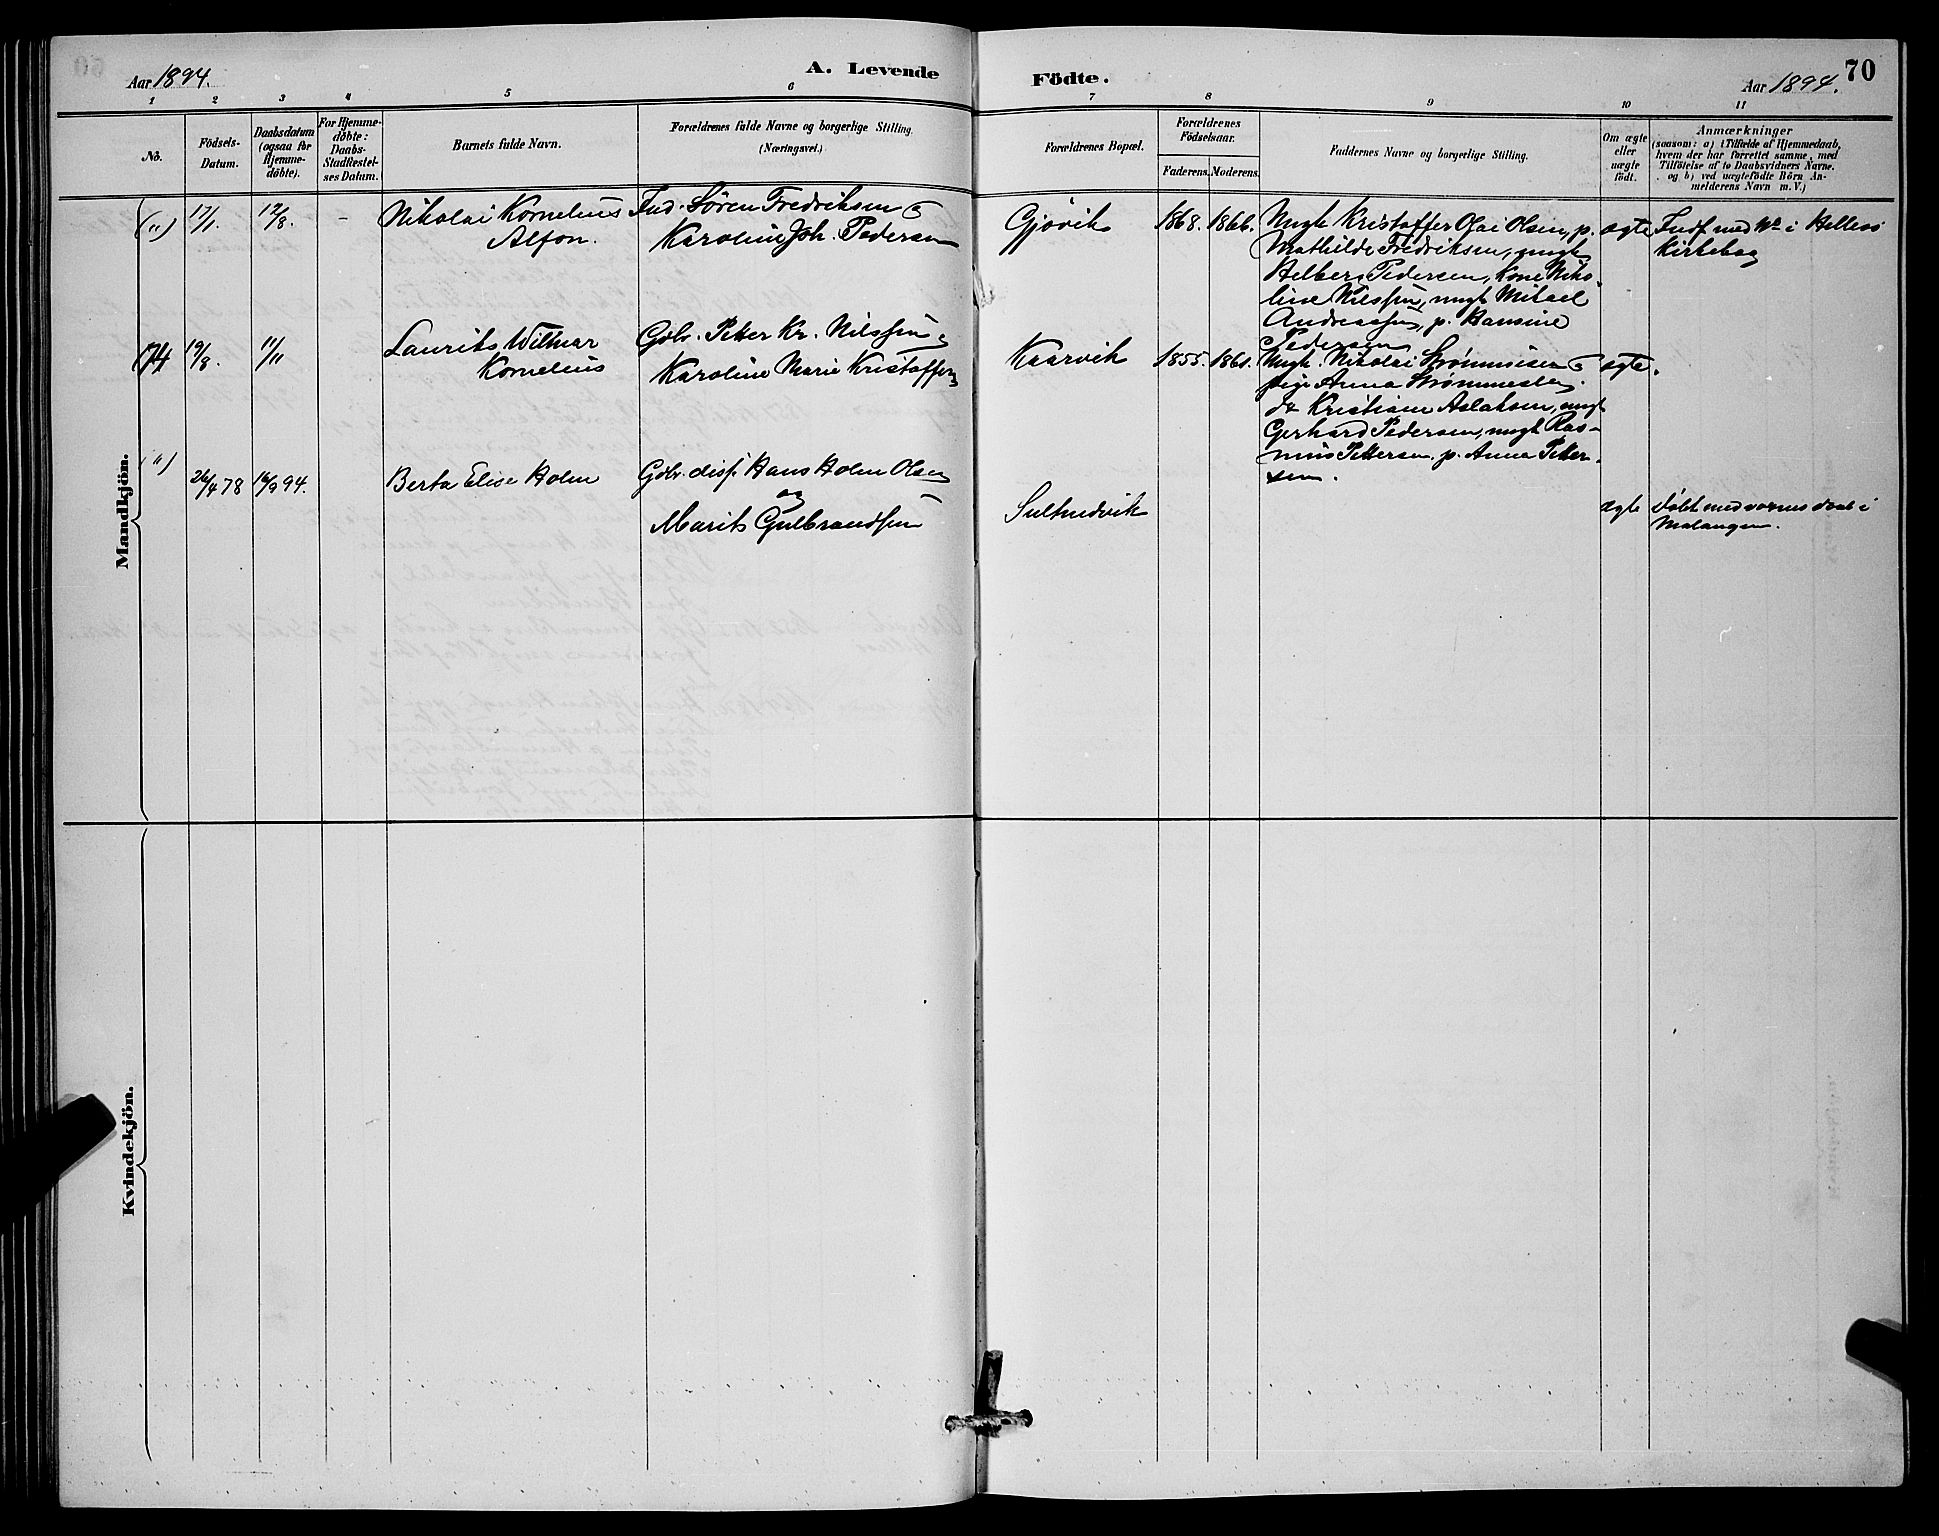 Aar 1894.
A. Levende
Födte.
Aar 1894.
70
1 2 3 4 5 6 7 8 9 10 11
No.
Födsels-
Datum.
Daabsdatum
(ogsaa for
Hjemme-
döbte).
For Hjemme-
döbte:
Daabs-
Stadfestel-
ses Datum.
Barnets fulde Navn.
Forældrenes fulde Navne og borgerlige Stilling.
(Næringsvei.)
Forældrenes Bopæl.
Forældrenes
Födselsaar.
Faderens. Moderens.
Faddernes Navne og borgerlige Stilling.
Om ægte
eller
uægte
födt.
Anmærkninger
(saasom: a) i Tilfælde af Hjemmedaab,
hvem der har forrettet samme, med
Tilföielse af to Daabsvidners Navne.
og b) ved uægtefödte Börn An-
melderens Navn m. V.)
Mandkjön.
(") 17/1. 12/8. -
Nikolai Kornelius
Alfon.
Ind. Sören Fredriksen &
Karoline Joh. Pedersen
Gjövik
1868. 1866.
Ungk Kristoffer Olai Olsen, p.
Mathilde Fredriksen, ungk
Helberg Pedersen, Kone Niko-
line Nilssen, ungk Mikael
Andreassen, p. Hansine
Pedersen
ægte
Indf med No i Hellesö
Kirkebog
(74 19/8. 11/11
Laurits Wilmar
Kornelius
Gdbr. Petter Kr. Nilssen &
Karoline Marie Kristoffersen
Kaarvik
1855. 1861.
Ungk. Nikolai Strömmesen &
pige Anna Strömmesen
do Kristiane Aslaksen, ungk
Gerhard Pedersen, ungk Ras-
mus Pettersen, p. Anna Petter-
sen.
ægte.
(") 26/4 78 16/9 94.
Berta Elise Holm
Gdbr. disp. Hans Holm Olsen
og
Marit Gulbrandsen
Sultindvik
ægte
Döbt med voxnes daab i
Malangen.
Kvindekjön.